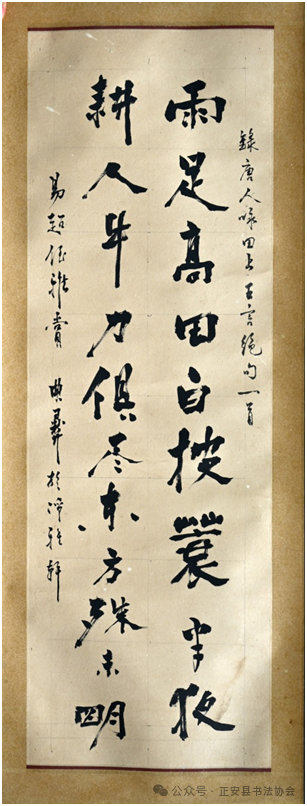 錄唐人咏田上五言絕句一首
雨足高田白披蓑半夜
耕人牛力俱尽东方殊未明
易超侄雅賞 典彝於淨雅軒
公众号·正安县书法协会